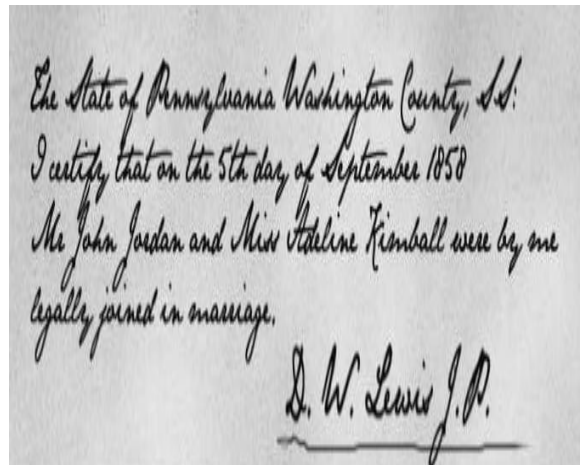 The State of Pennsylvania Washington County, SS:
I certify that on the 5th day of September 1858
Mr John Jordan and Miss Adeline Kimball were by me
legally joined in marriage.
D. W. Lewis J. P.